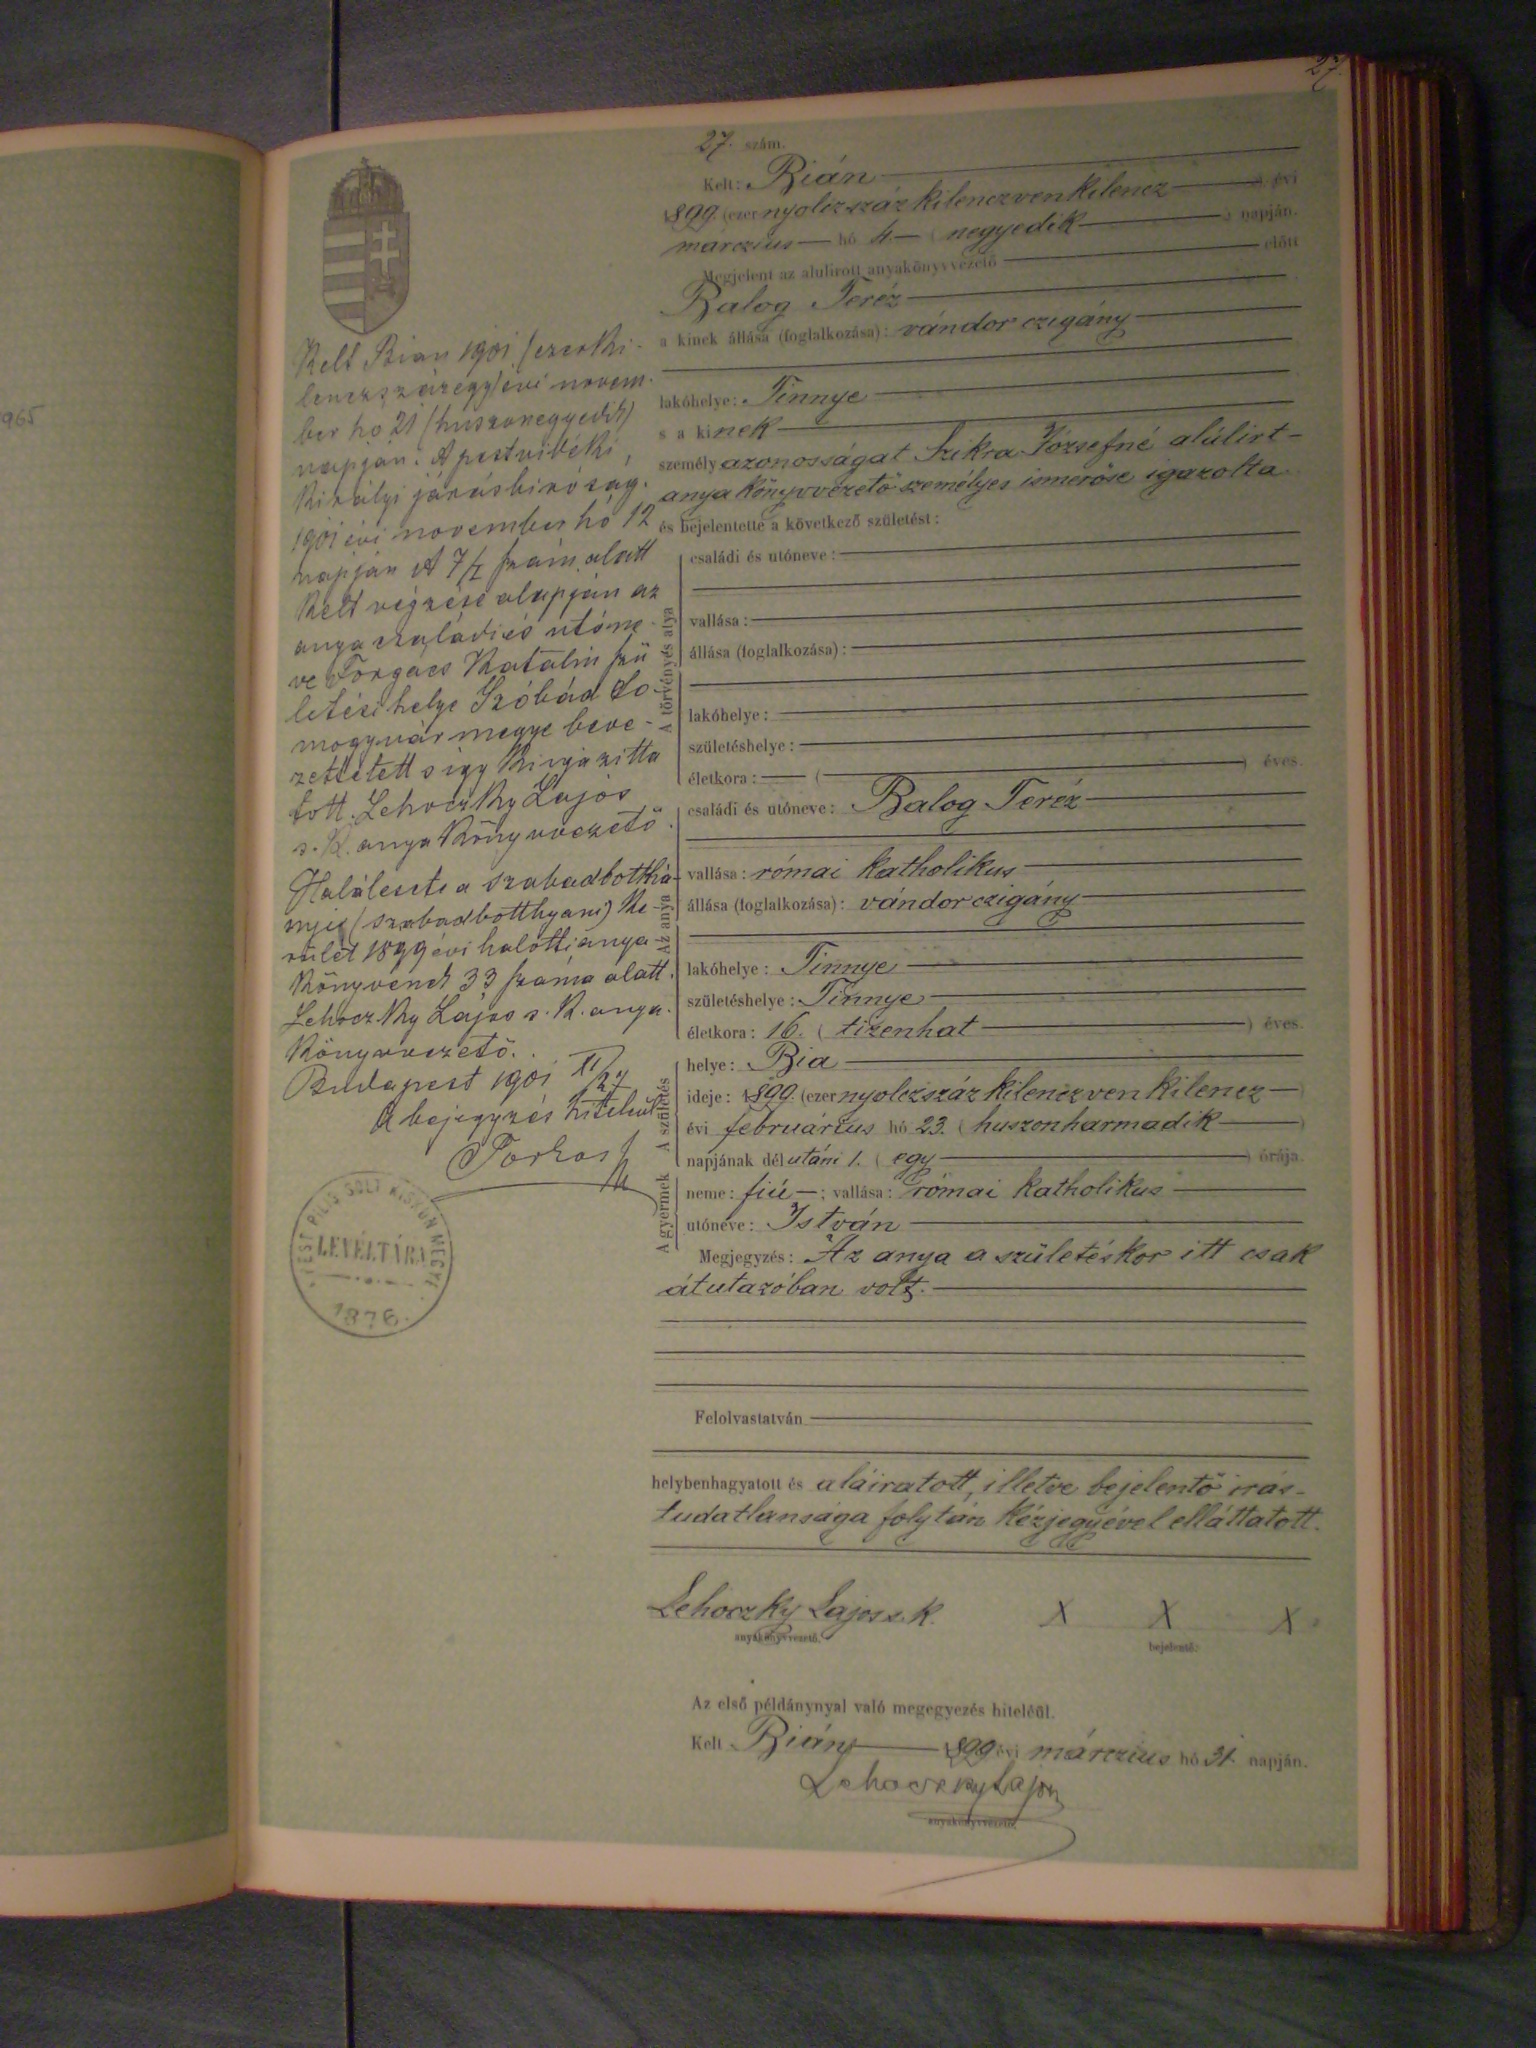 27.
965
27. szám.
Kelt: Bián
1899. (ezer nyolczszáz kilenczvenkilencz ) évi
márczius hó 4. ( negyedik ) napján.
Megjelent az alulirott anyakönyvvezető előtt
Balog Teréz
a kinek állása (foglalkozása): vándor czigány
lakóhelye: Tinnye
s a kinek
személyazonosságát Szikra Józsefné alúlirt
anyakönyvvezető személyes ismerőse igazolta
és bejelentette a következő születést:
A törvényes atya
családi és utóneve:
vallása:
állása (foglalkozása):
lakóhelye:
születéshelye:
életkora: ( ) éves.
Az anya
családi és utóneve: Balog Teréz
vallása: római katholikus
állása (foglalkozása): vándor czigány
lakóhelye: Tinnye
születéshelye: Tinnye
életkora: 16. ( tizenhat ) éves.
A születés
helye: Bia
ideje: 1899. (ezer nyolczszáz kilenczven kilencz )
évi február­ius hó 23. ( huszonharmadik )
napjának délutáni 1. ( egy ) órája.
A gyermek
neme: fiú ; vallása: római katholikus
utóneve: István
Megjegyzés: Az anya a születéskor itt csak
átutazóban volt.
Felolvastatván
helybenhagyatott és aláiratott, illetve bejelentő irás-
tudatlansága folytán kézjegyével elláttatott.
Lehoczky Lajos s. k. X X X
anyakönyvvezető. bejelentő.
Az első példánynyal való megegyezés hiteléül.
Kelt Bián 1899 évi márczius hó 31. napján.
Lehoczky Lajos
anyakönyvvezető.
Kelt Bian 1901 (ezerki-
lenczszázegy) évi novem-
ber hó 21 (huszonegyedik)
napján. A pestvidéki
királyi járásbiróság
1901 évi november hó 12
napján A 7/ szám alatt
kelt végzése alapján az
anya családi és utóne-
ve Forgács Katalin szü
letési helye Szóbád So-
mogyvármegye beve-
zettetett s így kiigazitta
tott. Lehoczky Lajos
s. k. anyakönyvvezető.
Haláleset a szabadbotthiá-
nyi (szabadbotthyani) ke-
rület 1899 évi halotti anya-
könyvének 33 száma alatt.
Lehoczky Lajos s. k. anya-
könyvvezető.
Budapest 1901 XI/27
A bejegyzés hiteléül
PEST PILIS SOLT KISKUN MEGYE
LEVÉLTÁRA
1876.